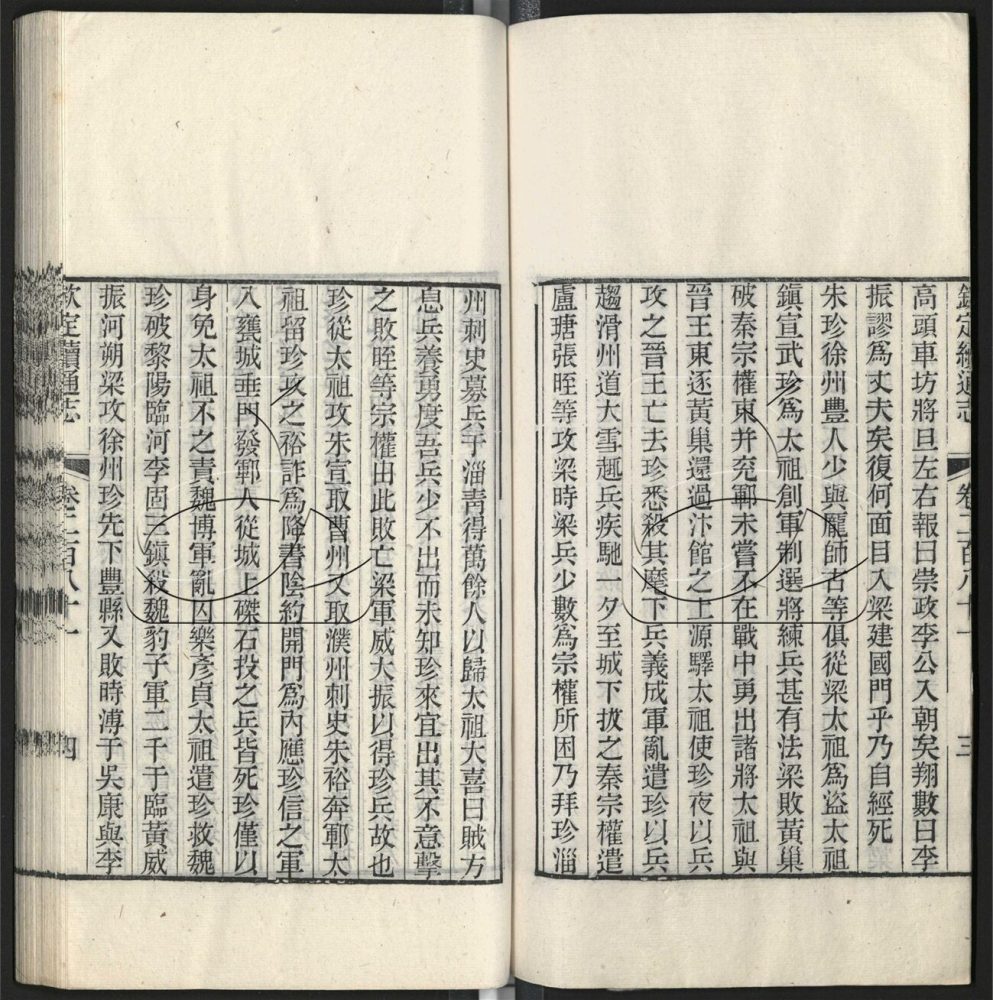 欽定續通志 卷二百八十一 三
高頭車坊將旦左右報曰崇政李公入朝矣翔歎曰李
振謬爲丈夫矣復何面目入梁建國門乎乃自經死
朱珍徐州豐人少與龐師古等俱從梁太祖爲盜太祖
鎭宣武珍爲太祖創軍制選將練兵甚有法梁敗黃巢
破秦宗權東并兖鄆未嘗不在戰中勇出諸將太祖與
晉王東逐黃巢還過汴館之上源驛太祖使珍夜以兵
攻之晉王亡去珍悉殺其麾下兵義成軍亂遣珍以兵
趨滑州道大雪趣兵疾馳一夕至城下拔之秦宗權遣
盧瑭張晊等攻梁時梁兵少數爲宗權所困乃拜珍淄
州刺史募兵于淄靑得萬餘人以歸太祖大喜曰賊方
息兵養勇度吾兵少不出而未知珍來宜出其不意擊
之敗晊等宗權由此敗亡梁軍威大振以得珍兵故也
珍從太祖攻朱宣取曹州又取濮州刺史朱裕奔鄆太
祖留珍攻之裕詐爲降書陰約開門爲內應珍信之軍
入甕城垂門發鄆人從城上磔石投之兵皆死珍僅以
身免太祖不之責魏博軍亂囚樂彥貞太祖遣珍救魏
珍破黎陽臨河李固三鎭殺魏豹子軍二千于臨黃威
振河朔梁攻徐州珍先下豐縣又敗時溥于吳康與李
欽定續通志 卷二百八十一 四